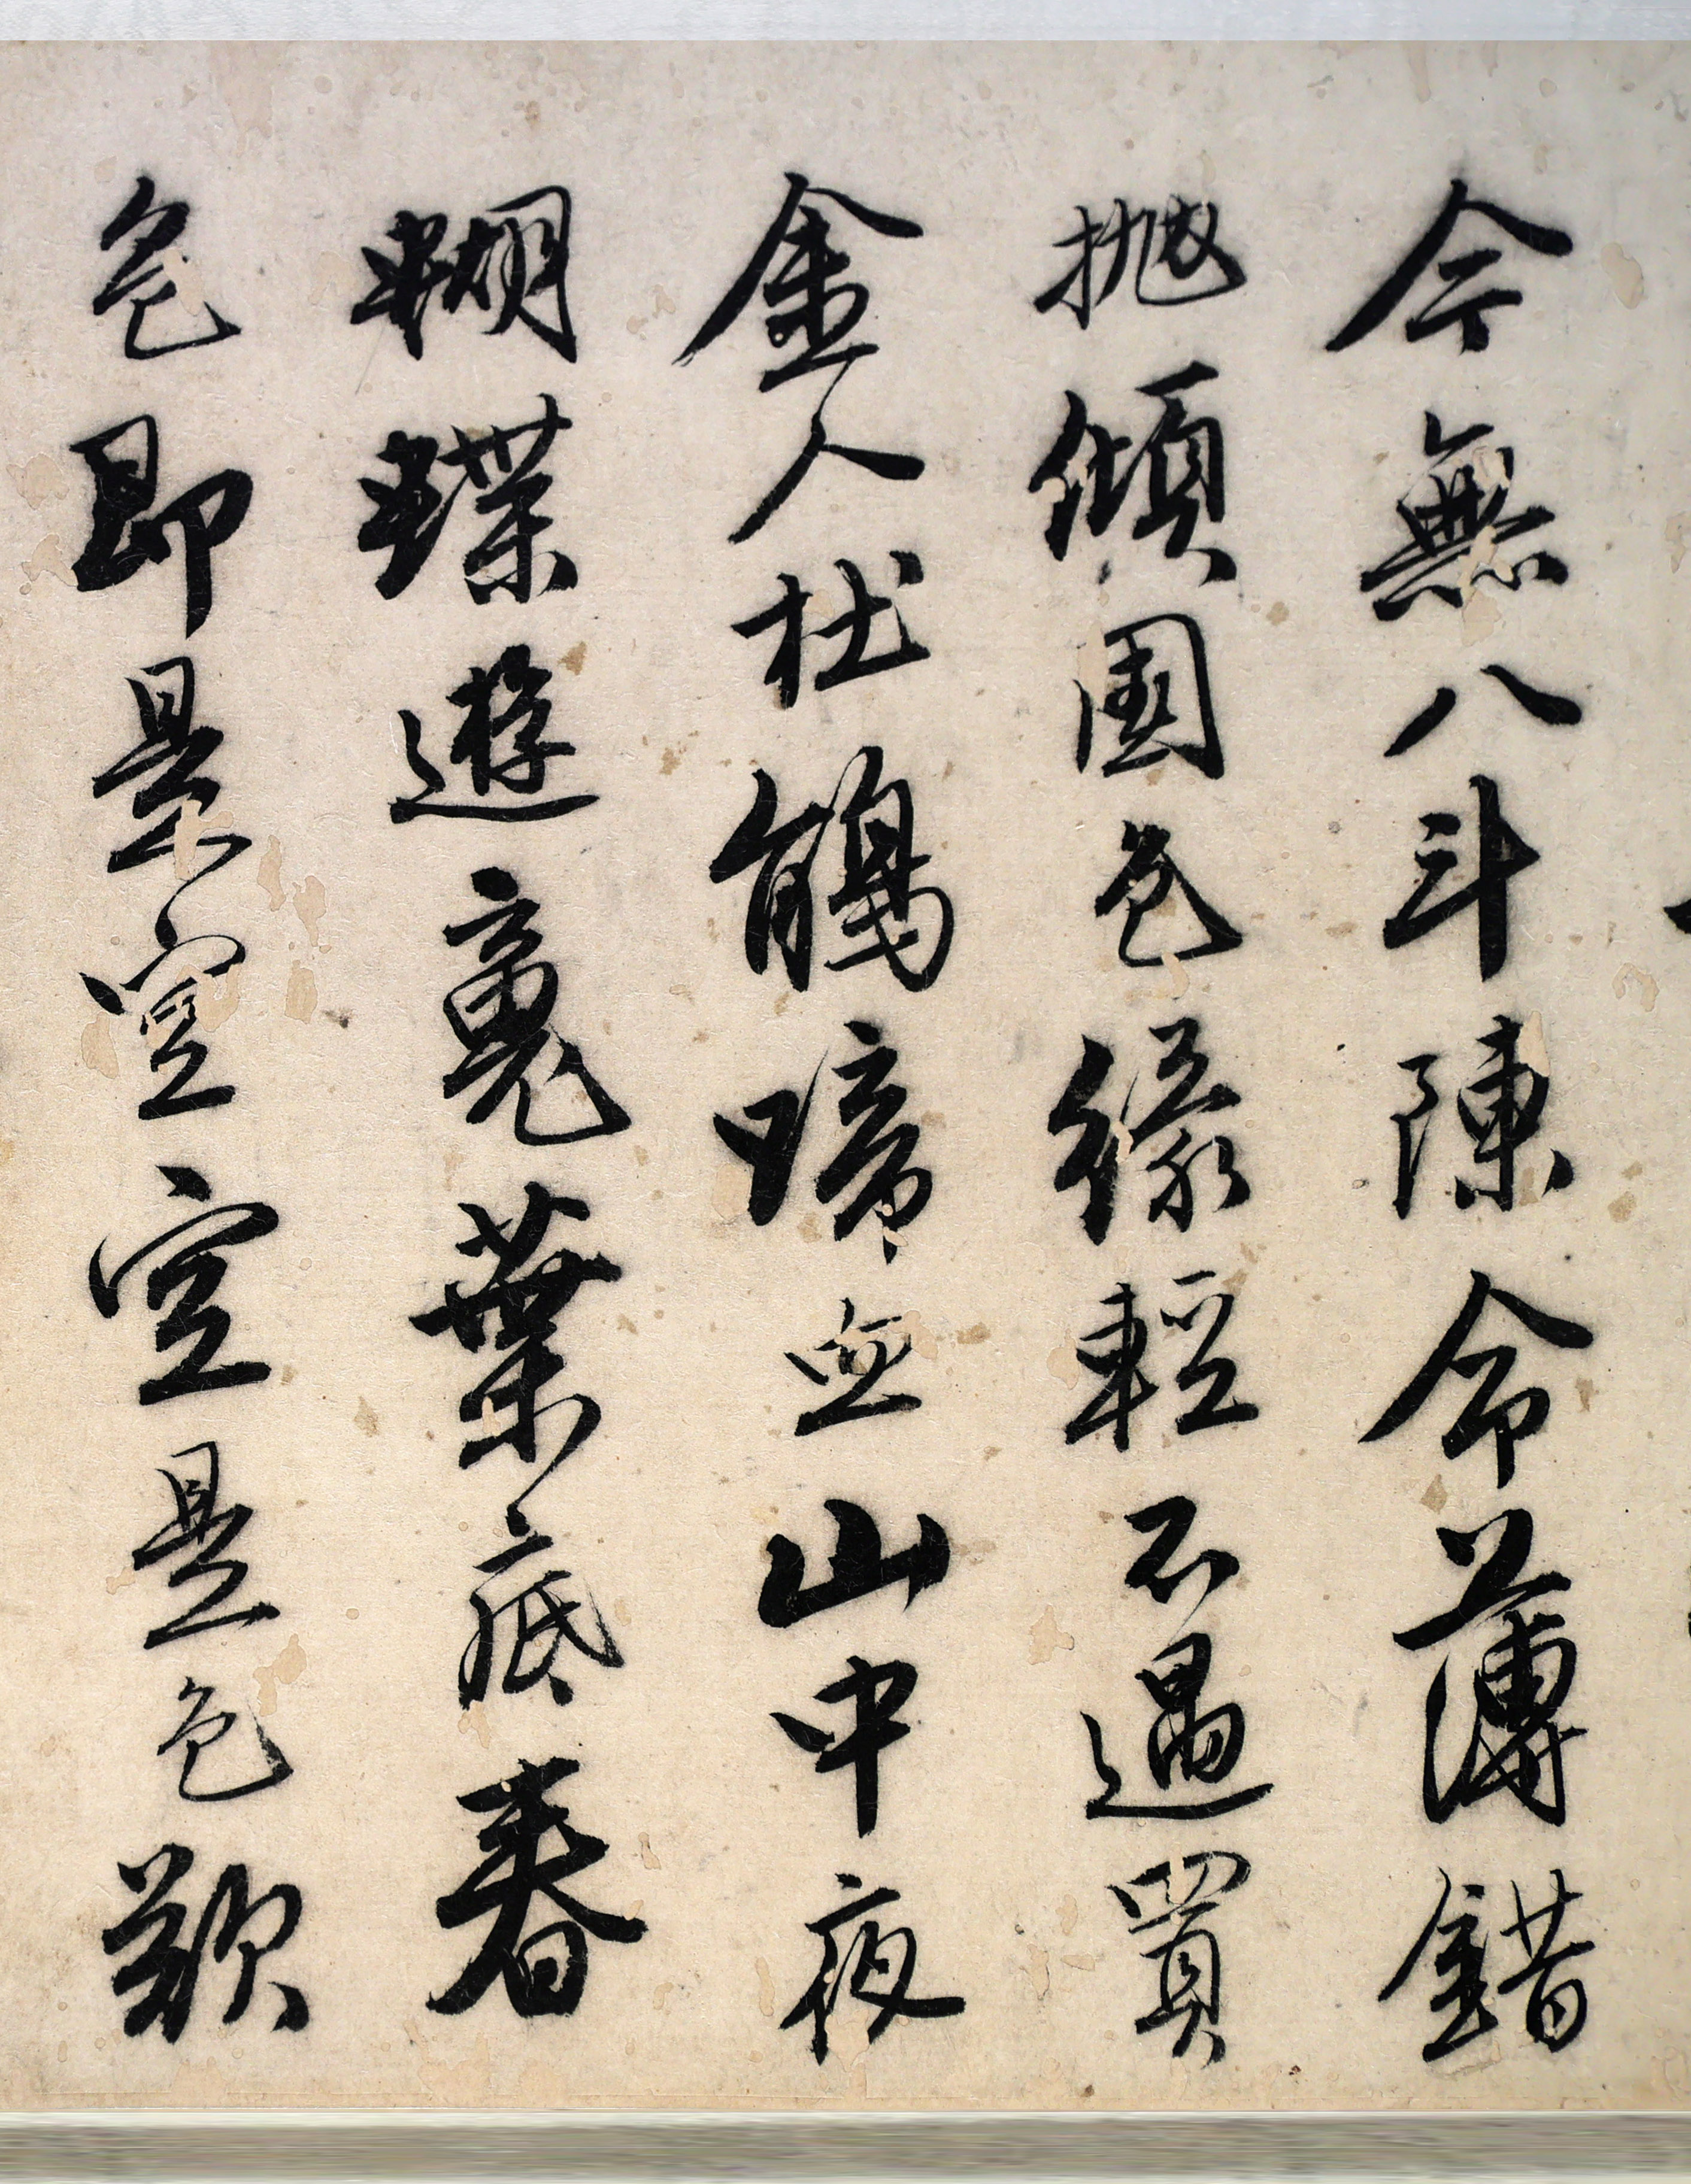 今無八斗陳命薄錯
抛傾國色緣輕不遇買
金人杜鵑啼血山中夜
蝴蝶遊魂葉底春
色即是空空是色歎